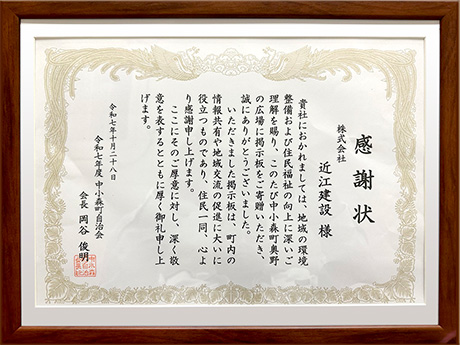 感謝状
株式会社
近江建設 様
貴社におかれましては、地域の環境
整備および住民福祉の向上に深いご
理解を賜り、このたび中小森町奥野
の広場に掲示板をご寄贈いただき、
誠にありがとうございました。
いただきました掲示板は、町内の
情報共有や地域交流の促進に大いに
役立つものであり、住民一同、心よ
り感謝申し上げます。
ここにそのご厚意に対し、深く敬
意を表するとともに厚く御礼申し上
げます。
令和七年十月二十八日
令和七年度 中小森町自治会
会長 岡谷 俊明